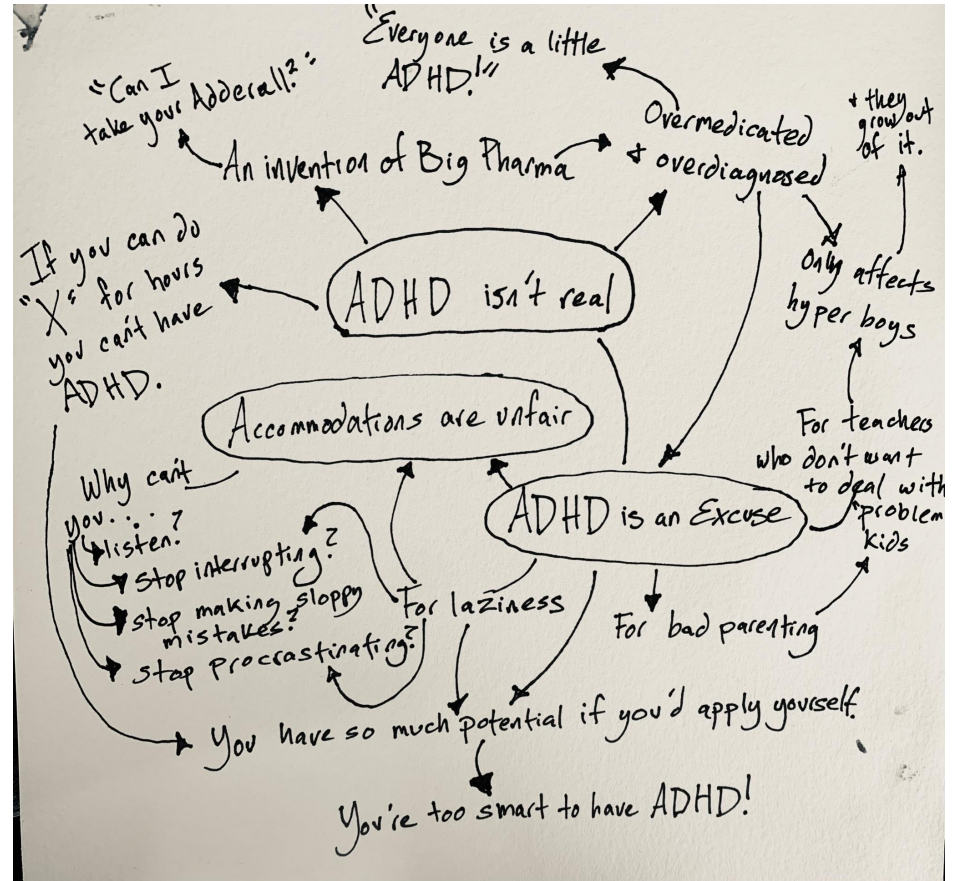 "Everyone is a little
ADHD!"
"Can I
take your Adderall?"
Overmedicated
& overdiagnosed
& they
grow out
of it.
An invention of Big Pharma
"If you can do
"X" for hours
you can't have
ADHD.
ADHD isn't real
Only affects
hyper boys
Accommodations are unfair
For teachers
who don't want
to deal with
"problem
kids
ADHD is an Excuse
Why can't
you....
listen?
stop interrupting?
stop making sloppy
mistakes?
stop procrastinating?
For laziness
For bad parenting
You have so much potential if you'd apply yourself.
You're too smart to have ADHD!